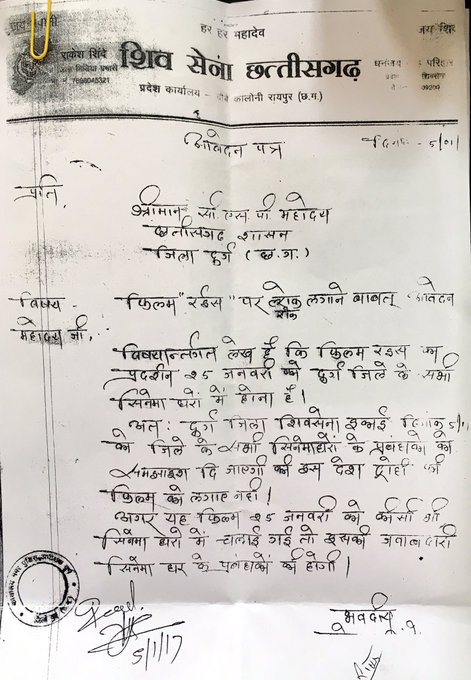 हर हर महादेव
राकेश शिंदे
जिला मिडिया प्रभारी
शिव सेना छत्तीसगढ़
प्रदेश कार्यालय - कालोनी रायपुर (छ.ग.)
आवेदन पत्र
दिनांक - 5/01/
प्रति,
श्रीमान सी.एस.पी महोदय
छत्तीसगढ़ शासन
जिला दुर्ग (छ.ग.)
विषय - फिल्म "रईस" पर रोक लगाने बाबत् आवेदन
महोदय जी,
विषयान्तर्गत लेख है कि फिल्म रईस का
प्रदर्शन 25 जनवरी को दुर्ग जिले के सभी
सिनेमा घरों में होना है।
अतः दुर्ग जिला शिवसेना इकाई दिनांक 5/01
को जिले के सभी सिनेमाघरों के प्रबंधको को
समझाइश दि जाएगी की इस देश द्रोही की
फिल्म को लगाए नहीं।
अगर यह फिल्म 25 जनवरी को किसी भी
सिनेमा घरो में चलाई गई तो इसकी जवाबदारी
सिनेमा घर के प्रबंधको की होगी।
5/1/17
भवदीय